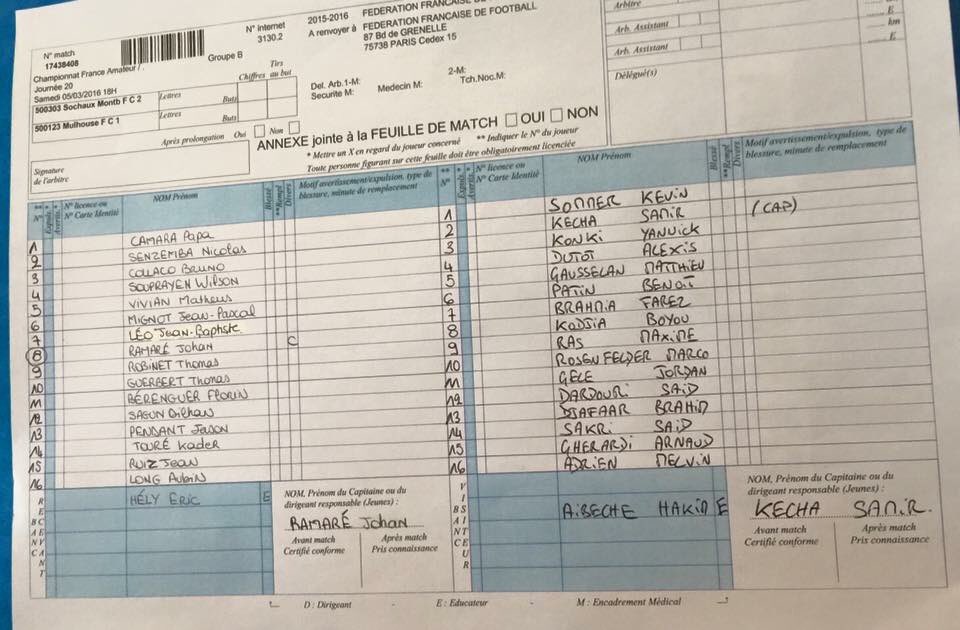 N° match
17438408
N° internet
3130.2
2015-2016 FEDERATION FRANÇAISE DE FOOTBALL
A renvoyer à FEDERATION FRANÇAISE DE FOOTBALL
87 Bd de GRENELLE
75738 PARIS Cedex 15
Championnat France Amateur /
Groupe B
Journée 20
Samedi 05/03/2016 18H
Chiffres
Tirs au but
500303 Sochaux Montb F C 2
Lettres
Buts
500123 Mulhouse F C 1
Lettres
Buts
Après prolongation Oui Non
Del. Arb.1-M:
2-M:
Securite M:
Medecin M:
Tch.Noc.M:
Arbitre
Arb. Assistant
Arb. Assistant
Délégué(s)
E
km
E
ANNEXE jointe à la FEUILLE DE MATCH OUI NON
* Mettre un X en regard du joueur concerné ** Indiquer le N° du joueur
Toute personne figurant sur cette feuille doit être obligatoirement licenciée
Signature
de l'arbitre
** N° * Expuls. * Avertis. N° licence ou N° Carte Identité NOM Prénom Blessé **Rempl Divers Motif avertissement/expulsion, type de blessure, minute de remplacement
1 CAMARA Papa
2 SENZEMBA Nicolas
3 COLLACO BRUNO
4 SOUPRAYEN Wilson
5 VIVIAN Matheus
6 MIGNOT Jean-Pascal
7 LÉO Jean-Baptiste
8 RAMARÉ Johan C
9 ROBINET Thomas
10 GUERBERT Thomas
11 BÉRENGUER Florin
12 SAGUN Dilhan
13 PENDANT Jason
14 TOURÉ Kader
15 RUIZ Jean
16 LONG Aubin
BANC
HÉLY ERIC E
RECEVANT
NOM, Prénom du Capitaine ou du
dirigeant responsable (Jeunes) :
RAMARÉ Johan
Avant match
Certifié conforme
Après match
Pris connaissance
** N° * Expuls. * Avertis. N° licence ou N° Carte Identité NOM Prénom Blessé **Rempl Divers Motif avertissement/expulsion, type de blessure, minute de remplacement
1 SOMMER KEVIN
2 KECHA SAMIR (CAP)
3 KONKI YANNICK
4 DUTOT ALEXIS
5 GAUSSELAN MATTHIEU
6 PATIN BENOIT
7 BRAHMIA FAREZ
8 KODJIA BOYOU
9 RAS MAXIME
10 ROSENFELDER MARCO
11 GELE JORDAN
12 DARDOURI SAID
13 DJAFAAR BRAHIM
14 SAKRI SAID
15 GHERARDI ARNAUD
16 ADRIEN MELVIN
BANC
AIBECHE HAKIM E
VISITEUR
NOM, Prénom du Capitaine ou du
dirigeant responsable (Jeunes) :
KECHA SAMIR.
Avant match
Certifié conforme
Après match
Pris connaissance
D : Dirigeant - E : Educateur - M : Encadrement Médical